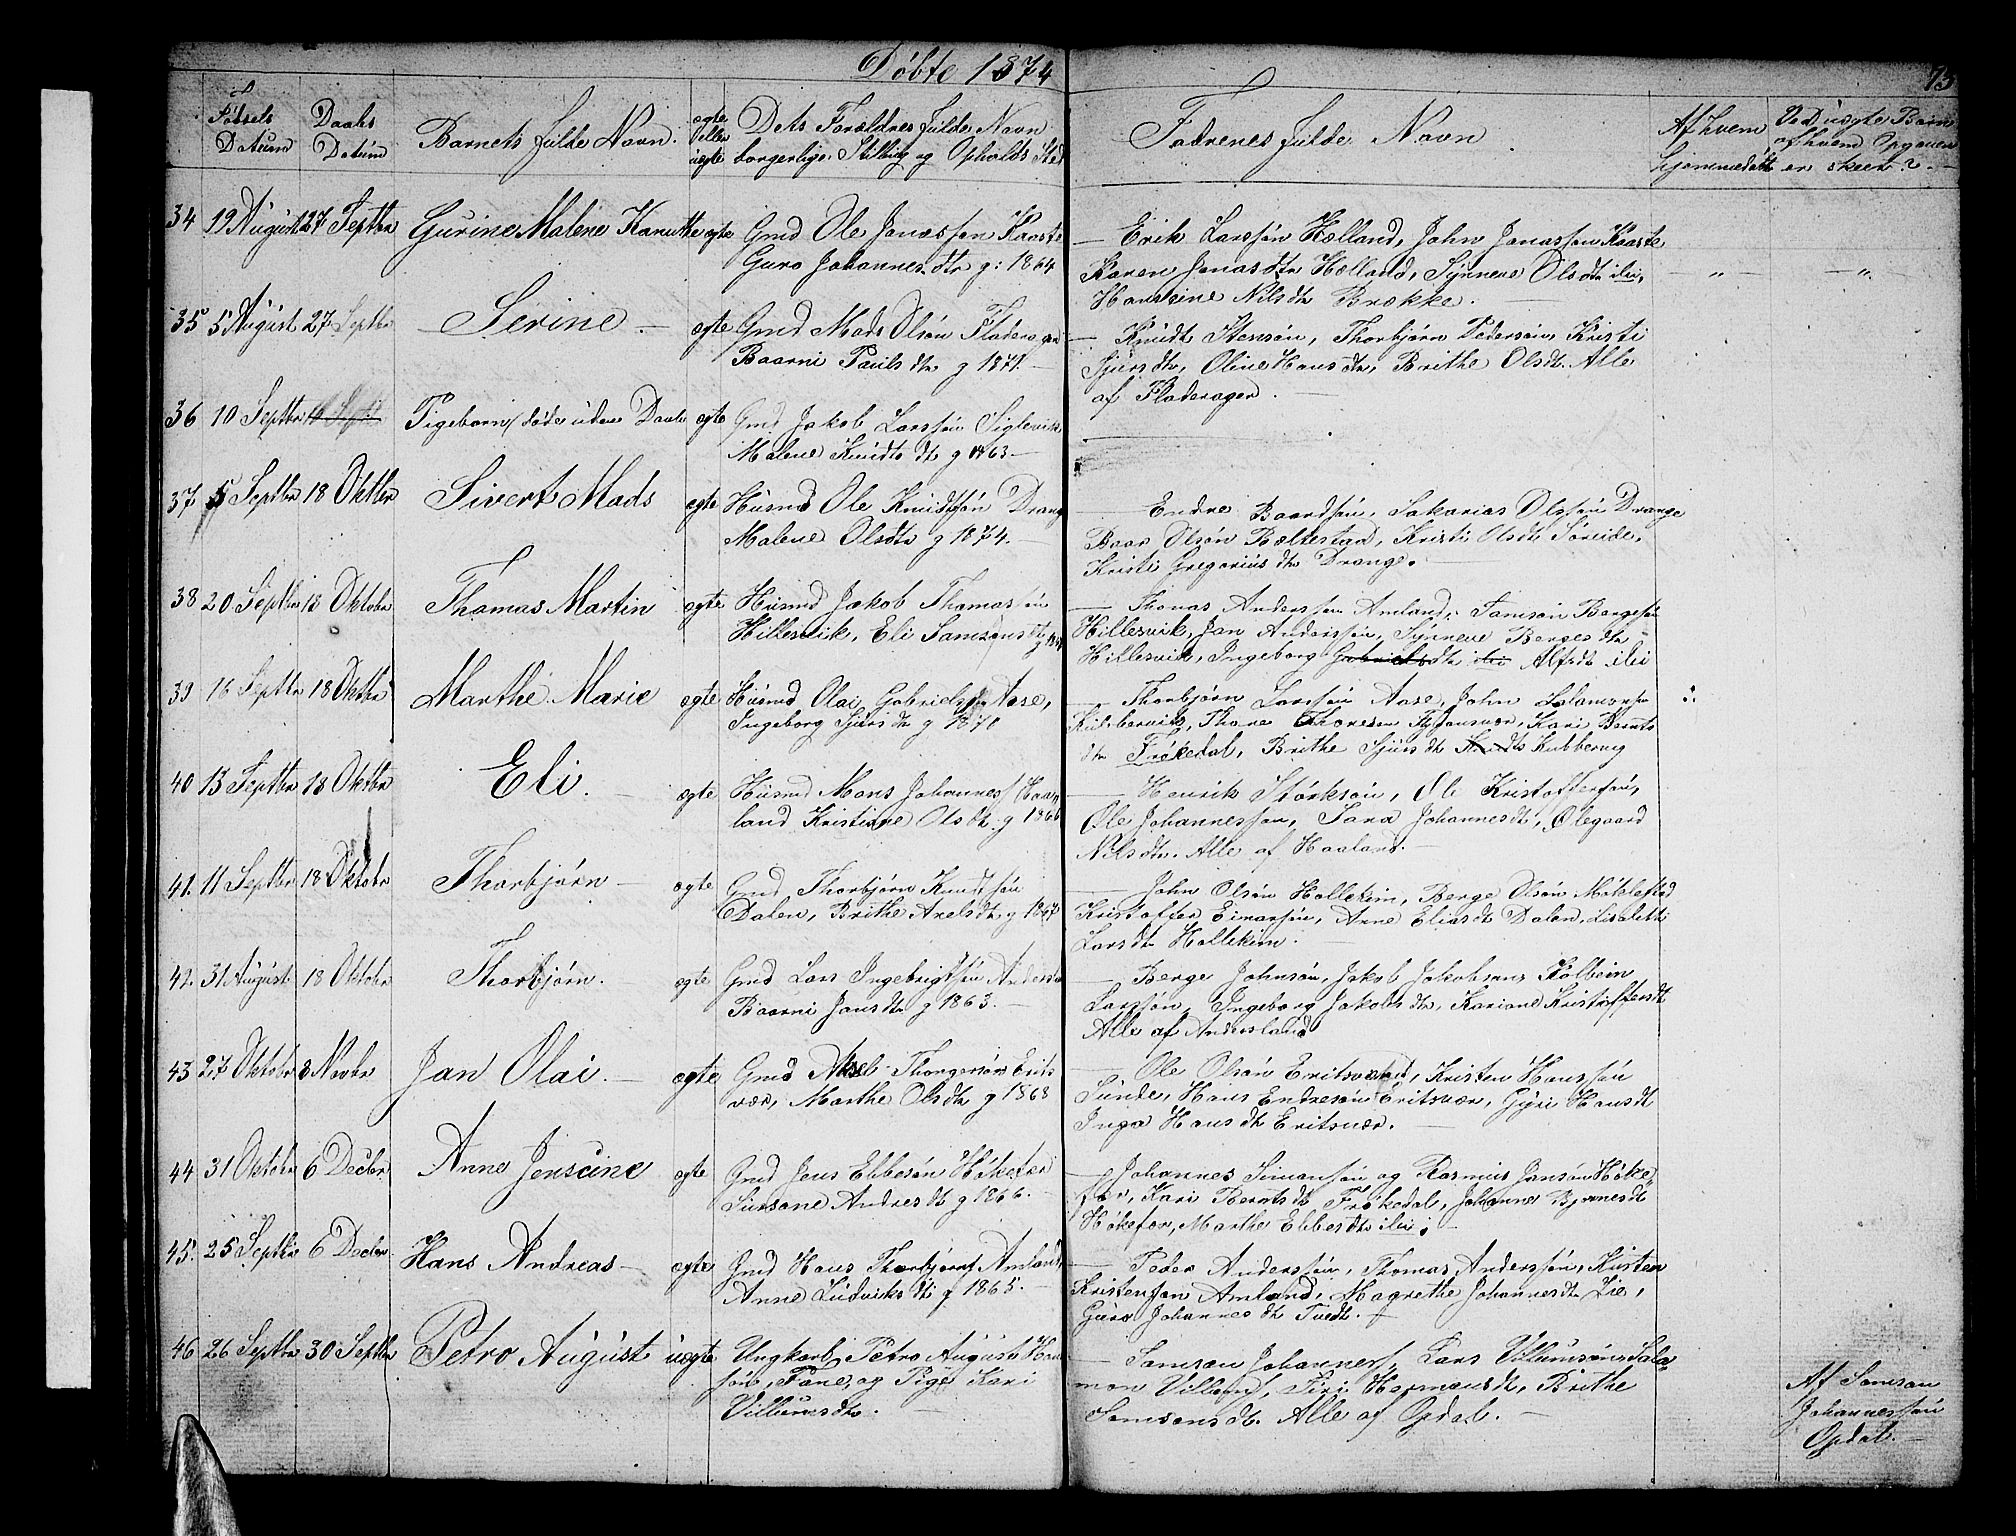 Døbte 1874
75
Fødsels Datum
Daabs Datum
Barnets fulde Navn.
ægte eller uægte
Dets Forældres fulde Navn
borgerlige Stilling og Opholds Sted
Fadrenes fulde Navn
Af hvem hjemmedøbt
Ved uægte Barn af hvem Opgaven er skeet? -
34 19 August 27 Septbr Gurine Malene Kanutte ægte Gmd Ole Jonassøn Kaaste
Guro Johannesdtr g: 1864
- Erik Larssøn Hælland, John Jonassøn Kaaste
Karen Jonasdtr Hælland, Synneve Olsdtr ibi,
Hanssine Nilsdtr Brække. -
35 5 August 27 Septbr Serine - ægte Gmd Mads Olsøn Fladerager
Baarni Paulsdtr g 1871. -
- Knudt Stensøn, Thorbjørn Pedersøn, Kristi
Sjursdtr, Oline Hansdtr, Brithe Olsdt. Alle
af Fladerager. -
36 10 Septbr Pigebarn, døde uden Daab ægte Gmd Jakob Larssøn Siglevik
Malene Knudtsdtr g 1863 -
37 5 Septbr 18 Oktbr Sivert Mads ægte Husmd Ole Knudtsøn Drange
Malene Olsdtr g 1874. -
- Endre Baardsøn, Sakarias Olssøn Drange
Baar Olsøn Bælkestad, Kristi Olsdt Søreide,
Kristi Gregoriusdtr Drange.
38 20 Septbr 18 Oktobr Thomas Martin ægte Husmd Jakob Thomassøn
Hillesvik, Eli Samsonsdtr g
- Thomas Anderssøn Amland, Samson Bergesøn
Hillesvik, Jan Anderssøn, Synneve Bergesdtr
Hillesvik, Ingeborg Gabrielsdtr ibi Alfsdt ibi
39 16 Septbr 18 Oktbr Marthe Marie ægte Husmd Olai Gabrielsøn Aase,
Ingeborg Sjursdtr g 1870
- Thorbjørn Larssøn Aase, John Salamonsøn
Kubbervik, Thore Thoresøn, Kari Bernts
dtr Frøkedal, Brithe Sjursdt Kubbervig
40 13 Septbr 18 Oktbr Eli. - ægte Husmd Mons Johanness Haa
land Kristiane Olsdt. g 1866
- Henrik Størksøn, Ole Kristoffersøn,
Ole Johannessøn, Sara Johannesdt, Olegaard
Nilsdtr. Alle af Haaland. -
41. 11 Septbr 18 Oktobr Thorbjørn - ægte Gmd Thorbjørn Knudtsøn
Dalen, Brithe Axelsdtr g 1867
- John Olsøn Hollekim, Berge Olsøn Møklestad
Kristoffer Einarsøn, Anne Eliasdt Dalen, Lisabetti
Larsdtr Hollekim. -
42. 31 August 18 Oktobr Thorbjørn. ægte Gmd Lars Ingebrigtsøn Andersland
Baarni Jansdtr g 1863. -
- Berge Johnsøn, Jakob Jakobsøn, Kolbein
Larssøn, Ingeborg Jakobsdtr, Kariane Kristoffersdt
Alle af Andersland
43 27 Oktobr 8 Novbr Jan Olai. - ægte Gmd Aksel Thorgersøn Erits
vær, Marthe Olsdtr g 1868
- Ole Olsøn Eritsværd, Kristen Hanssøn
Sunde, Hans Endresøn Eritsvær, Gyri Hansdt
Inga Hansdt Eritsvær. -
44 31 Oktobr 6 Decbr Anne Jenscine ægte Gmd Jens Ebbesøn Høkefær
Sursane Andresdt g 1866. -
- Johannes Simonsøn og Rasmus Jansøn Høke
fær, Kari Berntsdt Frøkedal, Johanne Bjørnesdt
Høkefær, Marthe Ebbesdtr ibi; -
45. 25 Septbr 6 Decbr. Hans Andreas - ægte Gmd Hans Thorbjørns Amland
Anne Ludviksdt g 1865. -
- Peder Anderssøn, Thomas Anderssøn, Kirsten
Kristensøn Amland, Magrethe Johannesdtr Lie,
Guro Johannesdtr Tvedt. -
46 26 Septbr 30 Septbr Petro August uægte Ungkarl Petro August Han
søn, Fane, og Pige Kari
Villumsdtr. -
- Samson Johanness, Lars Villumsøn, Sala
mon Villums, Siri Hermansdt, Brithe
Samsonsdt. Alle af Opdal. -
Af Samson
Johannessøn
Opdal. -